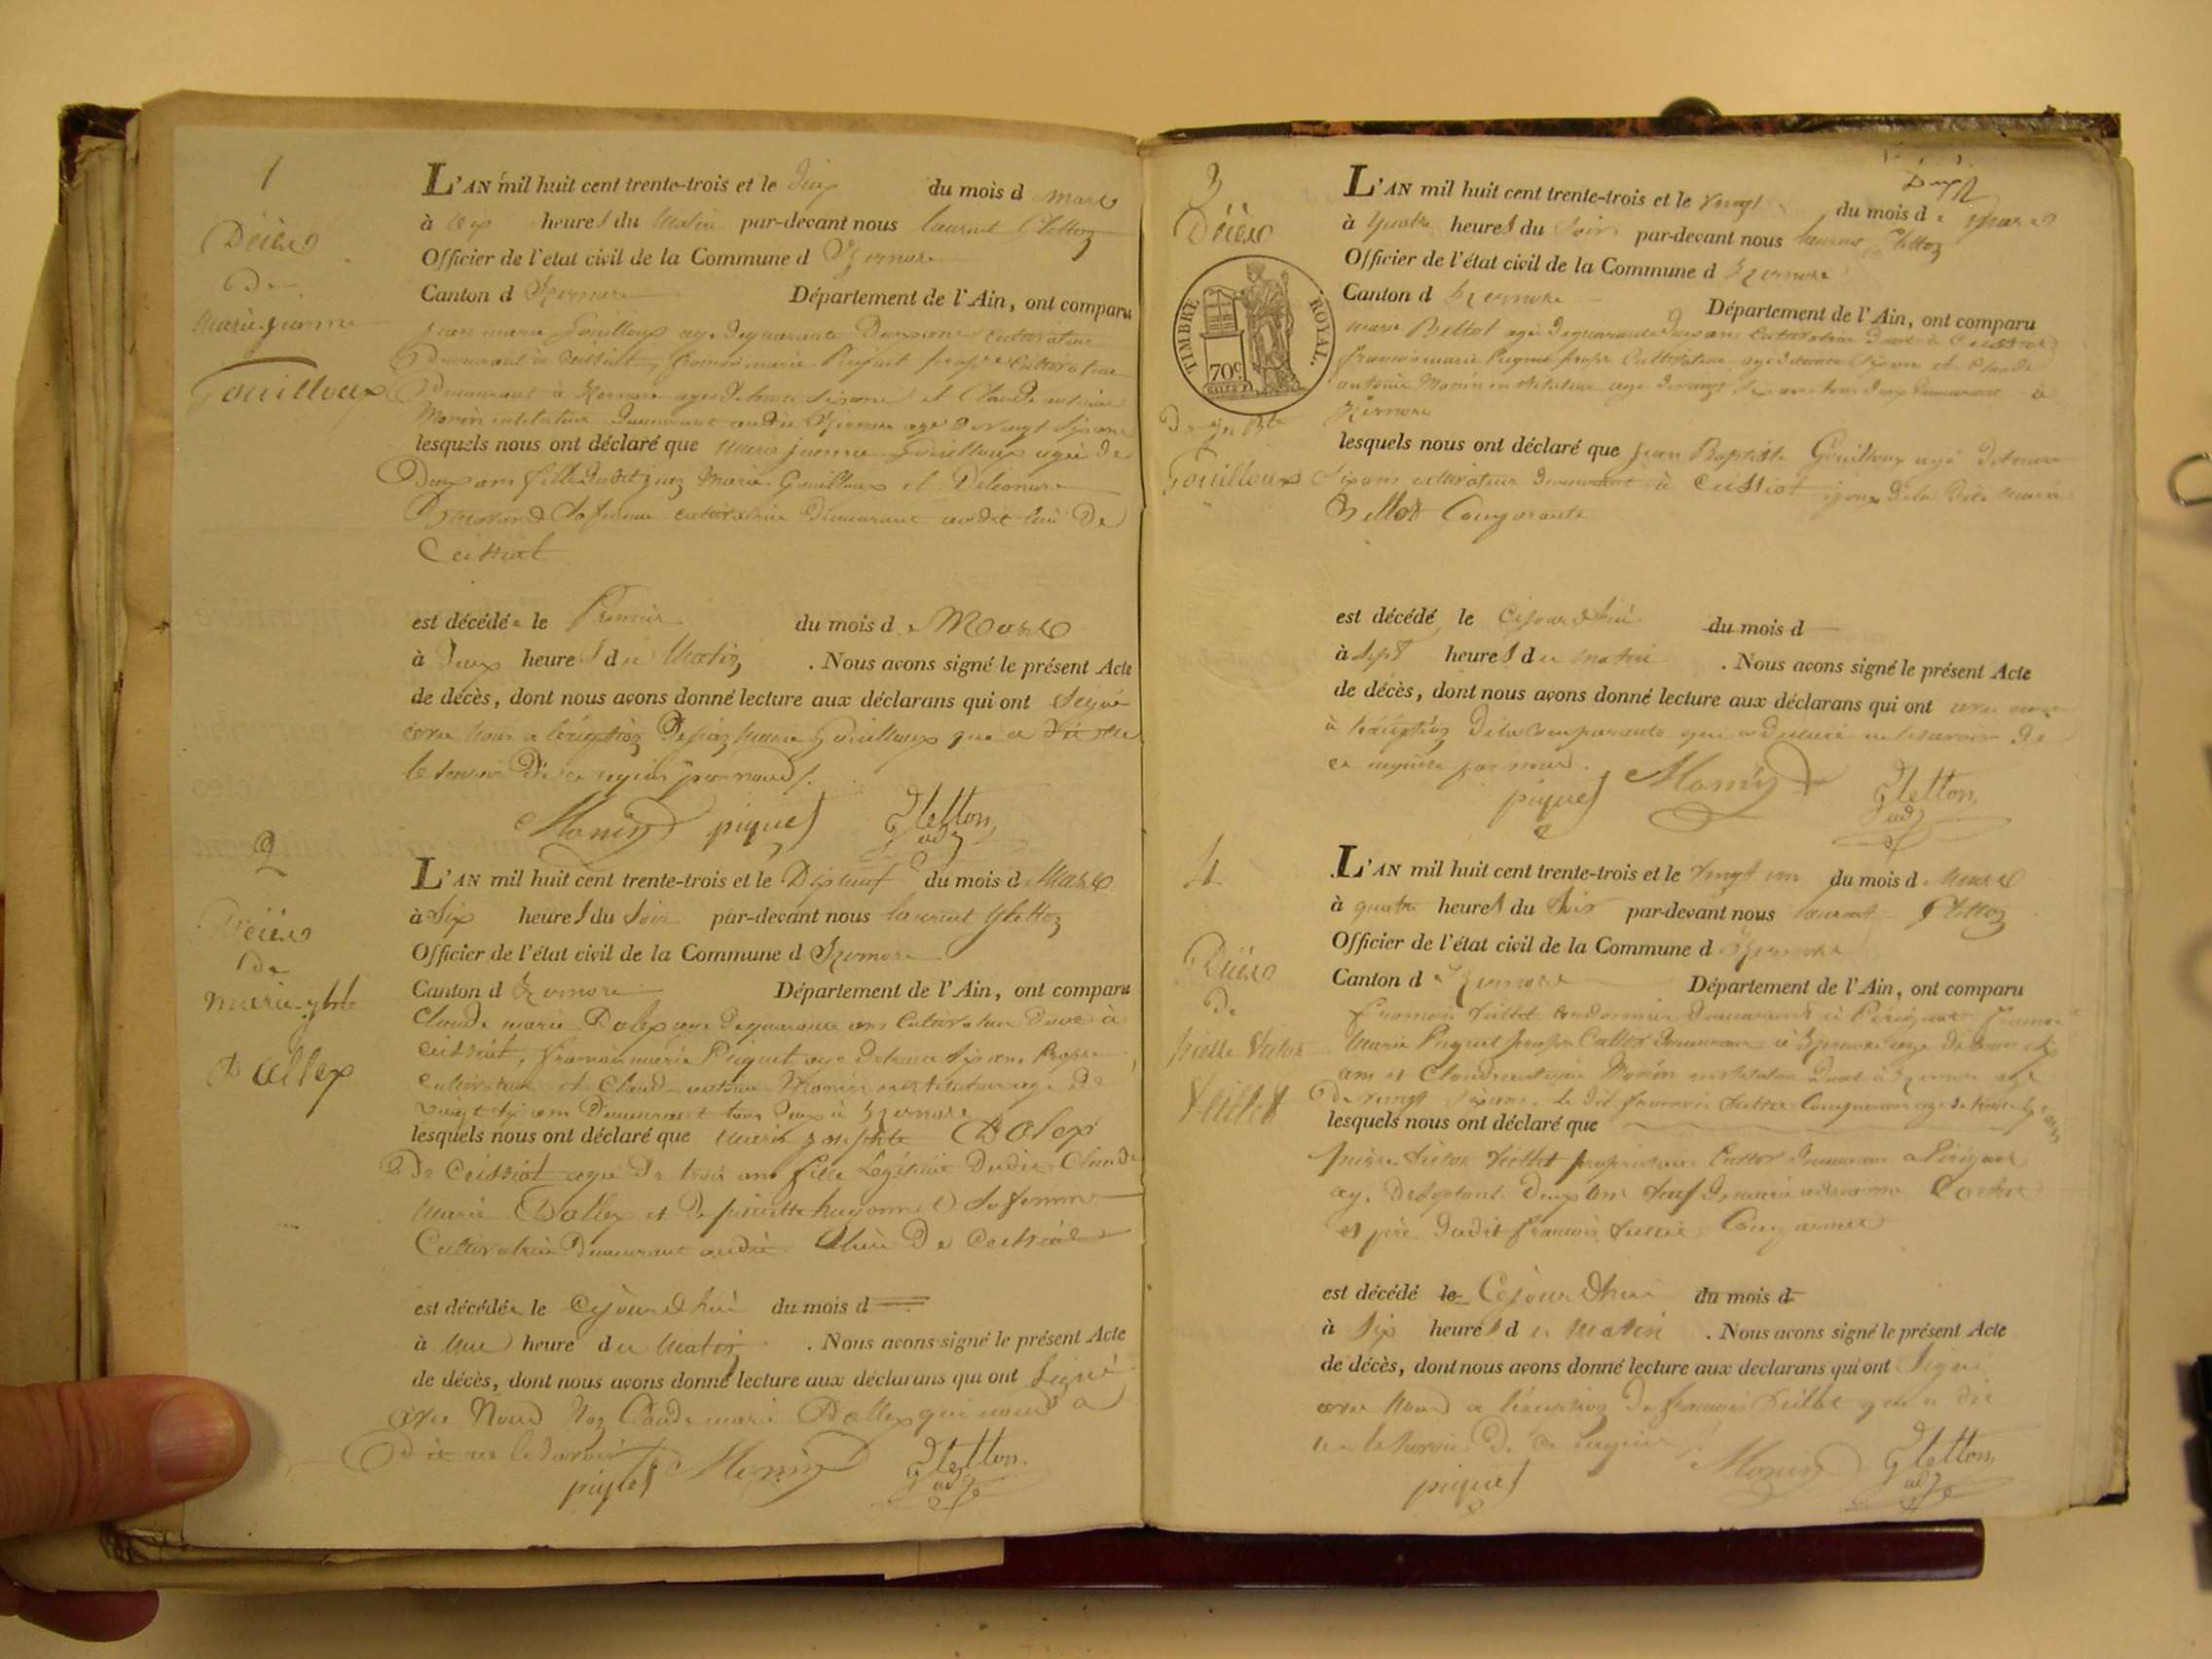 1
Décès
De
Marie jeanne
Gouilloux
L'AN mil huit cent trente-trois et le deux du mois d mars
à heures du Matin par-devant nous laurent Gletton
Officier de l'etat civil de la Commune d Izernore
Canton d Izernore Département de l'Ain, ont comparu
jean marie Gouilloux age de quarante Deux ans cultivateur
Demeurant à Ceissiat, françois marie Piquet propre cultivateur
Demeurant à Izernore age de trente six ans et Claude antoine
Monin instituteur Demeurant audit Izernore age de vingt six ans
lesquels nous ont déclaré que marie jeanne Gouilloux agée de
Deux ans fille Dudit jean Marie Gouilloux et De
sa femme cultivatrice Demeurant audit lieu De
Ceissiat
est décédée le Premier du mois de Mars
à Deux heures du Matin . Nous avons signé le présent Acte
de décès, dont nous avons donné lecture aux déclarans qui ont signé
avec nous a l'exception De jean marie Gouilloux qui a dit ne
le savoir De ce requis par nous
Monin piquet Gletton
adj
2
Décès
de
marie jphte
Dallex
L'AN mil huit cent trente-trois et le Dix neuf du mois de Mars
à Six heures du Soir par-devant nous laurent Gletton
Officier de l'état civil de la Commune d Izernore
Canton d Izernore Département de l'Ain, ont comparu
Claude marie Dalex age De quarante ans Cultivateur Demt à
Ceissiat, françois marie Piquet age de trente six ans Propre
Cultivateur et Claude antoine Monin instituteur age De
vingt six ans Demeurant tous Deux à Izernore
lesquels nous ont déclaré que marie josephte Dalex
De Ceissiat agée De trois ans fille Légitime Dudit Claude
Marie Dallex et De pierrette sa femme
Cultivatrice Demeurant audit lieu De Ceissiat
est décédée le Cejourdhui du mois d
à une heure du Matin . Nous avons signé le présent Acte
de décès, dont nous avons donné lecture aux déclarans qui ont Signé
avec Nous Non Claude marie Dallex qui nous a
Dit ne le savoir
piquet Monin Gletton
adj
3
Décès
TIMBRE ROYAL.
70c
De jn Bte
Gouilloux
Deux
L'AN mil huit cent trente-trois et le vingt du mois de Mars
à quatre heures du Soir par-devant nous laurent Gletton
Officier de l'état civil de la Commune d Izernore
Canton d Izernore Département de l'Ain, ont comparu
marie Bellot agée De quarante Deux ans Cultivatrice Demt à Ceissiat
françois marie Piquet propre Cultivateur age de trente six ans et Claude
antoine Monin instituteur age de vingt six ans tous Deux Demeurant à
Izernore
lesquels nous ont déclaré que jean Baptiste Gouilloux agé de
Six ans cultivateur Demeurant à Ceissiat époux De la Dite marie
Bellot Comparante
est décédé le Cejourdhui du mois d
à Sept heures du matin . Nous avons signé le présent Acte
de décès, dont nous avons donné lecture aux déclarans qui ont avec nous
à l'exception De la Comparante qui a Déclaré ne le savoir De
ce requise par nous.
piquet Monin Gletton
adj
4
Décès
De
pierre Victor
L'AN mil huit cent trente-trois et le vingt un du mois de Mars
à quatre heures du Soir par-devant nous laurent Gletton
Officier de l'état civil de la Commune d Izernore
Canton d Izernore Département de l'Ain, ont comparu
françois cordonnier Demeurant à Perignat françois
Marie Piquet propre Cultivr Demeurant à Izernore age de trente six
ans et Claude antoine Monin instituteur Demt à Izernore age
De vingt six ans. le Dit françois Comparant age de trente
lesquels nous ont déclaré que
pierre Victor propriétaire Cultivr Demeurant a Perignat
agé De Septante Deux ans Veuf De marie
et père Dudit françois Comparant
est décédé le Cejourdhui du mois d
à Six heures du Matin . Nous avons signé le présent Acte
de décès, dont nous avons donné lecture aux déclarans qui ont Signé
avec Nous a l'exception De françois qui a dit
ne le savoir De ce requis
piquet Monin Gletton
adj